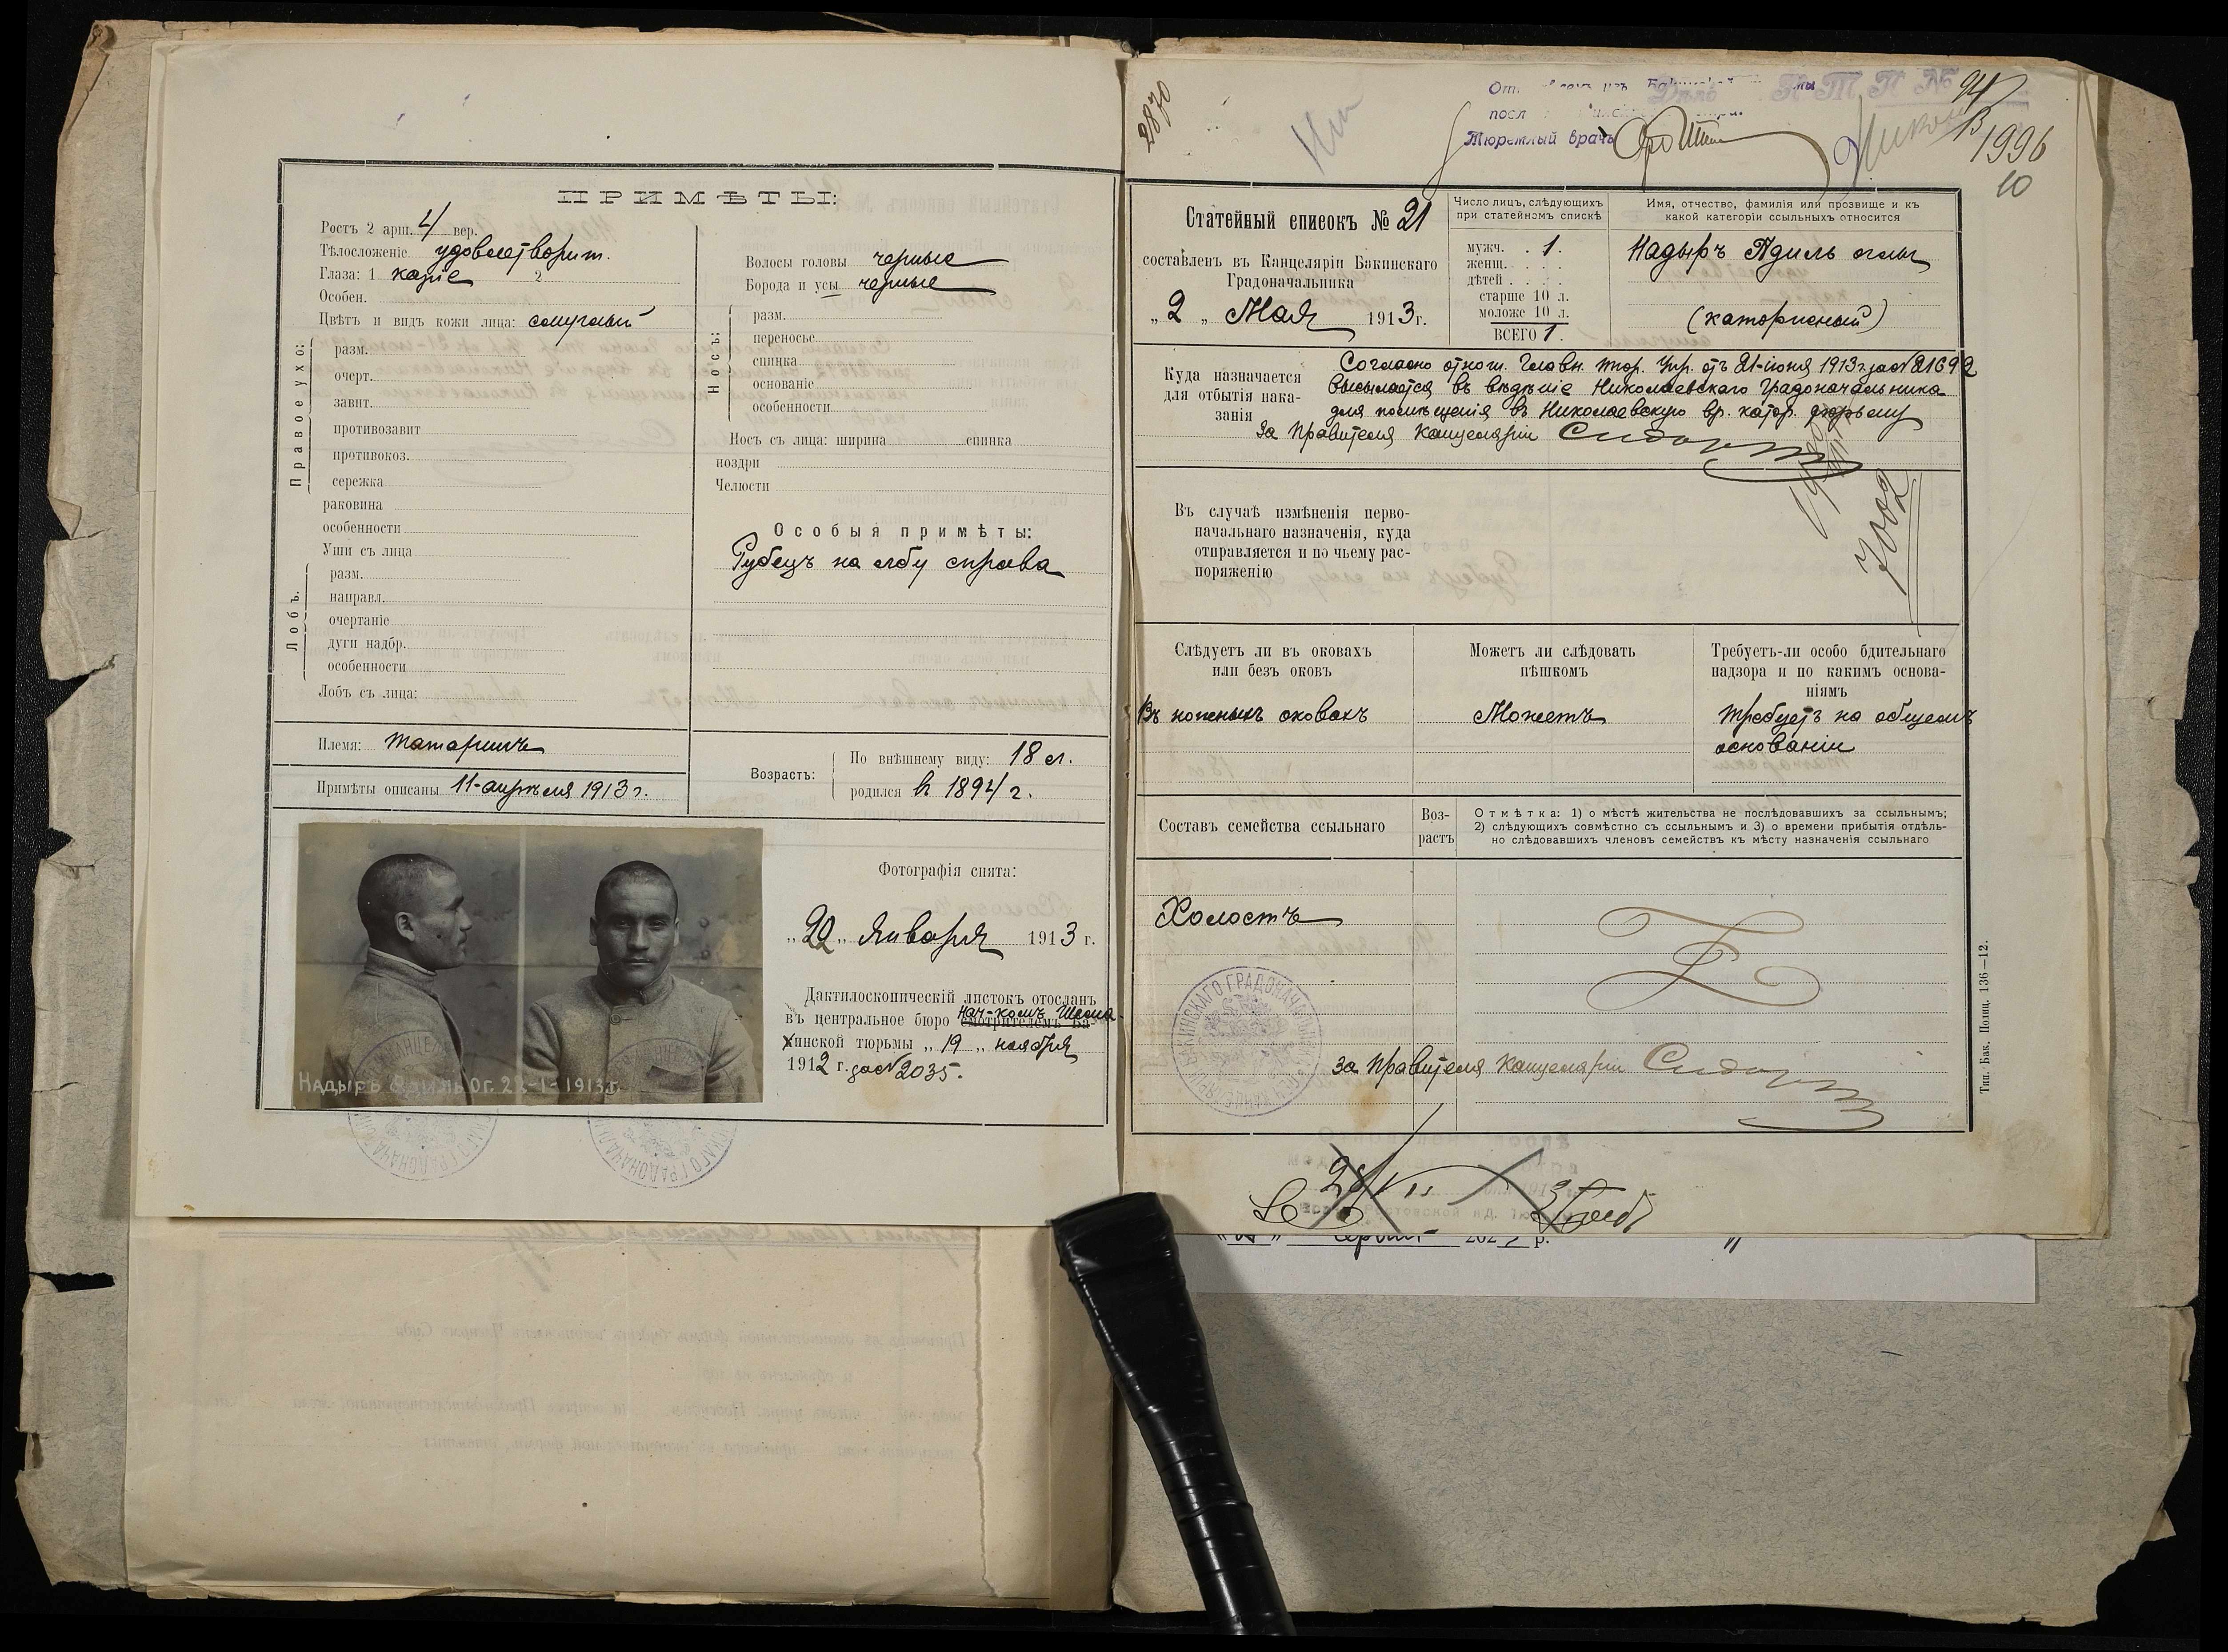 ПРИМѢТЫ:
Ростъ 2 арш. 4 вер.
Тѣлосложеніе удовлетворит.
Глаза: 1 каріе 2
Особен.
Цвѣтъ и видъ кожи лица: смуглый
Правое ухо:
разм.
очерт.
завит.
противозавит
противокоз.
сережка
раковина
особенности
Уши съ лица
Лобъ.
разм.
направл.
очертаніе
дуги надбр.
особенности
Лобъ съ лица:
Волосы головы черные
Борода и усы черные
Носъ:
разм.
переносье
спинка
основаніе
особенности
Носъ съ лица: ширина спинка
ноздри
Челюсти
Особыя примѣты:
Рубецъ на лбу справа
Племя: татаринъ
Примѣты описаны 11-апрѣля 1913 г.
Возрастъ:
По внѣшнему виду: 18 л.
родился въ 1894 г.
Надыръ Адиль Ог. 22-1-1913 г.
Фотографія снята:
„22„ Января 1913 г.
Дактилоскопическій листокъ отосланъ
въ центральное бюро Нач-комъ
смотрителемъ Ба-
кинской тюрьмы „19„ ноября
1912 г. за № 2035.
2870
Тюремный врачъ
Дѣло Н Т П №
94
1996
10
Статейный списокъ № 21
составленъ въ Канцеляріи Бакинскаго
Градоначальника
„2„ Мая 1913 г.
Число лицъ, слѣдующихъ
при статейномъ спискѣ
мужч. 1.
женщ.
дѣтей
старше 10 л.
моложе 10 л.
ВСЕГО 1.
Имя, отчество, фамилія или прозвище и къ
какой категоріи ссыльныхъ относится
Надыръ Адиль оглы
(каторжный)
Куда назначается
для отбытія нака-
занія
Согласно отнош. Главн. тюр. Упр. отъ 21-іюня 1913 г. за № 21692
высылается въ вѣдѣніе Николаевскаго Градоначальника
для помѣщенія въ Николаевскую вр. катор. тюрьму
За Правителя Канцеляріи
7002
Въ случаѣ измѣненія перво-
начальнаго назначенія, куда
отправляется и по чьему рас-
поряженію
Слѣдуетъ ли въ оковахъ
или безъ оковъ
Въ ножныхъ оковахъ
Можетъ ли слѣдовать
пѣшкомъ
Можетъ
Требуетъ-ли особо бдительнаго
надзора и по какимъ основа-
ніямъ
Требуетъ на общемъ
основаніи
Составъ семейства ссыльнаго
Воз-
растъ
Отмѣтка: 1) о мѣстѣ жительства не послѣдовавшихъ за ссыльнымъ;
2) слѣдующихъ совмѣстно съ ссыльнымъ и 3) о времени прибытія отдѣль-
но слѣдовавшихъ членовъ семействъ къ мѣсту назначенія ссыльнаго
Холостъ
За Правителя Канцеляріи
Тип. Бак. Полиц. 136—12.